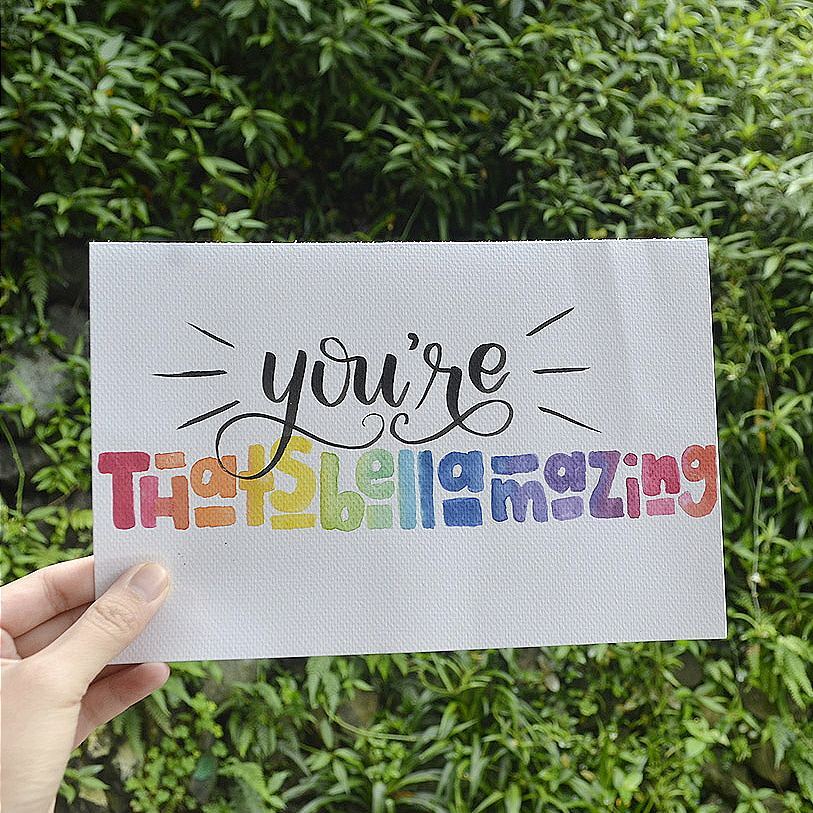 you're
THatSbellamazing